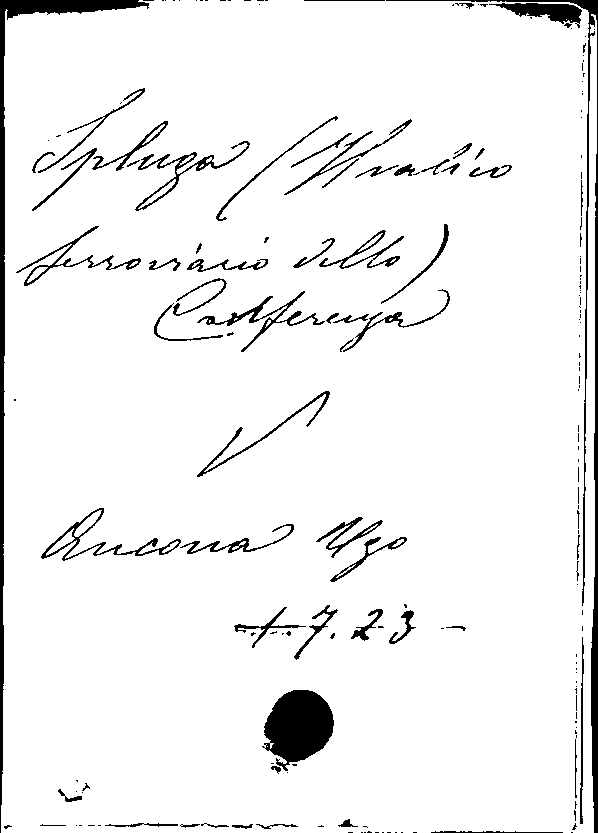 Spluga (Valico
ferroviario dello)
Conferenza
V
Ancona Ugo
7.23 -